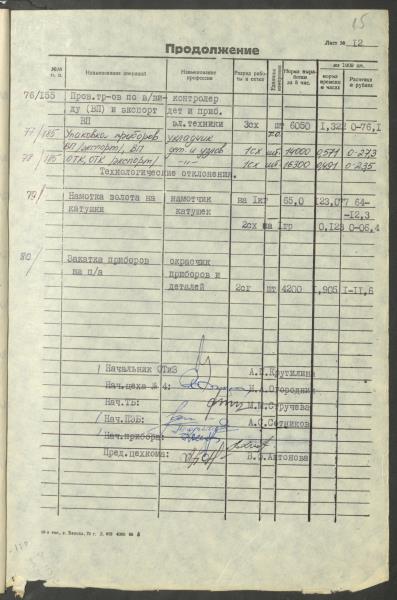 15
Лист № 12
Продолжение
№№ п. п. Наименование операций Наименование профессии Разряд работы и сетки Единица измерения Норма выработки за 8 час. на 1000 шт.
норма времени в часах Расценка в рублях
76/155 Пров.тр-ов по в/ви- контролер
ду (ВП) и экспорт дет и приб.
ВП эл.техники 3сх т.о. 6050 1,322 0-76,1
77/185 Упаковка приборов укладчик
ВП/экспорт/, ВП дет. и узлов 1сх шт 14000 0,571 0-27,3
78/185 ОТК, ОТК /экспорт/ 1сх шт 16300 0,491 0-23,5
Технологические отклонения.
79/ Намотка золота на намотчик на 1кг 65,0 123,077 64-
катушки катушек -12,3
2сх на 1гр 0,123 0-06,4
80/ Закатка приборов окрасчик
на п/а приборов и
деталей 2сг шт 4200 1,905 1-11,6
Начальник ОТиЗ А.И.Крутилина
Нач.цеха № 4: И.А.Огородник
Нач.ТБ: М.М.Стручева
Нач.ПЭБ: А.С.Сотников
Нач.прибора:
Пред.цехкома: В.В.Антонова